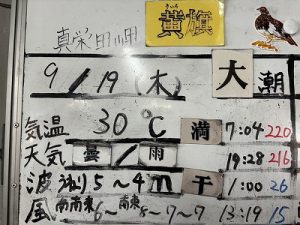 真栄田岬
きいろ
黄旗
9/19(木) 大潮
気温 30℃ 満 7:04 220
天気 曇/雨 19:28 216
波 うねり5~4m 干 1:00 26
風 南南東6~南東8~7~7 13:19 15